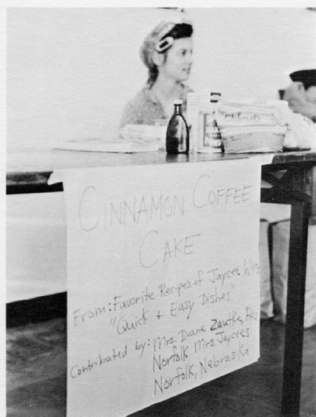 CINNAMON COFFEE
CAKE
From: Favorite Recipes of Jaycee Wives
"Quick + Easy Dishes"
Contributed by: Mrs. Duane Zautke, Pres
Norfolk Mrs. Jaycees
Norfolk, Nebraska